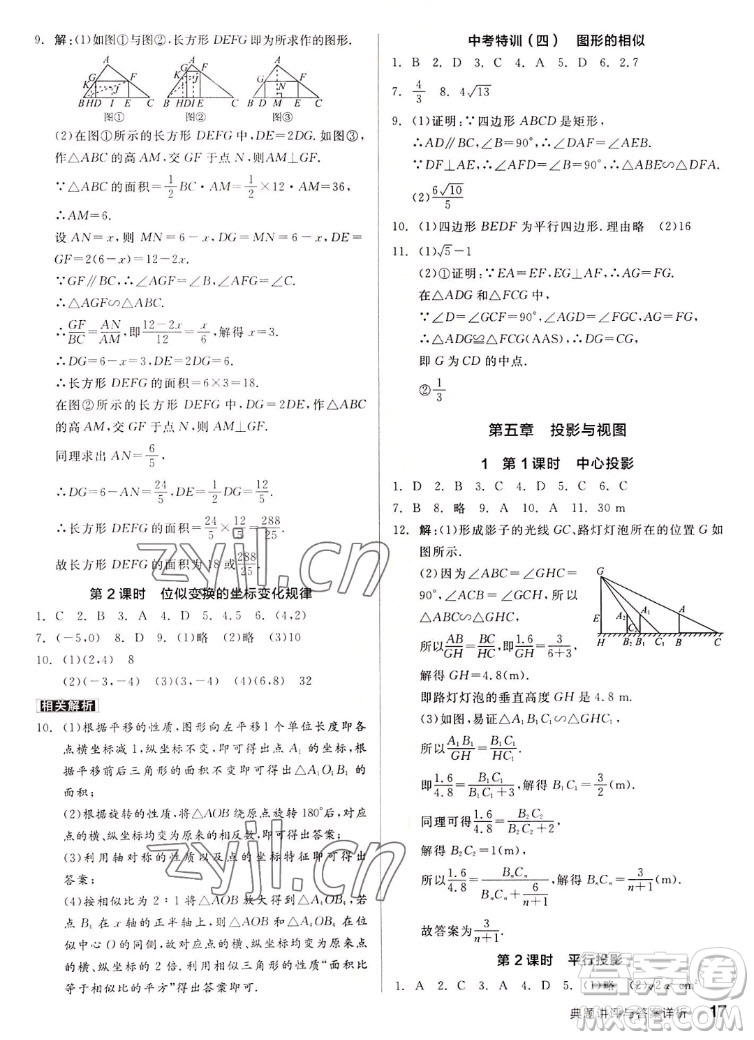 9. 解:(1)如图①与图②,长方形 DEFG 即为所求作的图形.
A
K G F
B H D I E C
图①
A
K G F
B H D I E C
图②
A
G N F
B D M E C
图③
(2)在图①所示的长方形 DEFG 中,DE=2DG. 如图③,
作△ABC 的高 AM,交 GF 于点 N,则 AN⊥GF.
∵△ABC 的面积=1/2 BC·AM=1/2×12·AM=36,
∴AM=6.
设 AN=x,则 MN=6-x,DG=MN=6-x,DE=
GF=2(6-x)=12-2x.
∵GF∥BC,∴∠AGF=∠ABC,∠AFG=∠ACB.
∴△AGF∽△ABC.
∴GF/BC=AN/AM,即 (12-2x)/12=x/6,解得 x=3.
∴DG=6-x=3,DE=12-2x=6.
∴长方形 DEFG 的面积=6×3=18.
在图②所示的长方形 DEFG 中,DG=2DE.
同理求出 AN=6/5,
∴DG=6-6/5=24/5,DE=12/5.
∴长方形 DEFG 的面积=24/5×12/5=288/25.
故长方形 DEFG 的面积为 18 或 288/25.
第 2 课时 位似变换的坐标变化规律
1. C 2. B 3. A 4. D 5. 4.5 6. (4,2)
7. (-5,0) 8. D 9. (1)略 (2)略 (3)10
10. (1)(2,4) 8
(2)(-3,-4) (3)(3,-4) (4)(6,8) 32
相关解析
10. (1)根据平移的性质,图形向左平移 1 个单位长度,即各
点横坐标减 1,纵坐标不变,即可得出点 A₁ 的坐标,根
据平移前后三角形的面积不变可得出△A₁O₁B₁ 的
面积;
(2)根据旋转的性质,将△AOB 绕原点旋转180°后,对应
点的横、纵坐标均变为原来的相反数,即可得出答案;
(3)利用轴对称的性质以及点的坐标特征即可得出
答案;
(4)按相似比为 2∶1 将△AOB 放大得到△A₄OB₄,若
点 B₄ 在 x 轴的正半轴上,则△AOB 和△A₄OB₄ 在位
似中心 O 的同侧,故对应点的横、纵坐标变为原来的点
的 2 倍,利用相似三角形的性质“面积比
等于相似比的平方”可得出答案.
中考特训(四) 图形的相似
1. B 2. D 3. C 4. A 5. D 6. 2.7
7. 4/3 8. 4√13
9. (1)证明:∵四边形 ABCD 是矩形,
∴AD∥BC,∠B=90°,∴∠DAF=∠AEB.
∵DF⊥AE,∴∠AFD=∠B=90°,∴△ABE∽△DFA.
(2)6√10/5
10. (1)四边形 BEDF 为平行四边形.理由略 (2)16
11. (1)√5-1
(2)①证明:∵EA=EF,∴∠EAF=∠EFA.
在△ADG 和△FCG 中,
∵∠D=∠GCF=90°,∠DAG=∠F,AD=FC,
∴△ADG≌△FCG(AAS),∴DG=CG,
即 G 为 CD 的中点.
②1/3
第五章 投影与视图
1 第 1 课时 中心投影
1. C 2. B 3. C 4. D 5. C 6. C
7. B 8. 略 9. A 10. A 11. 30 m
12. 解:(1)形成影子的光线 GC,路灯灯泡所在的位置 G 如
图所示.
(2)因为∠ABC=∠GHC=
90°,∠ACB=∠GCH,
所以△ABC∽△GHC,
所以 AB/GH=BC/HC,即 1.6/GH=3/(6+3),
解得 GH=4.8(m),
即路灯灯泡的垂直高度 GH=4.8 m.
(3)如图,易证△A₁B₁C₁∽△GHC₁,
所以 A₁B₁/GH=B₁C₁/HC₁,
即 1.6/4.8=B₁C₁/(B₁C₁+3),解得 B₁C₁=3/2(m),
同理可得 1.6/4.8=B₂C₂/(B₂C₂+2),
解得 B₂C₂=1(m),
所以 1.6/4.8=BₙCₙ/(BₙCₙ+6/(n+1)),解得 BₙCₙ=3/(n+1)(m),
故答案为 3/(n+1).
第 2 课时 平行投影
1. A 2. D 3. A 4. D 5. (1)略
典题讲评与答案详析 17
zyjl.cn
zyjl.cn
答案圈